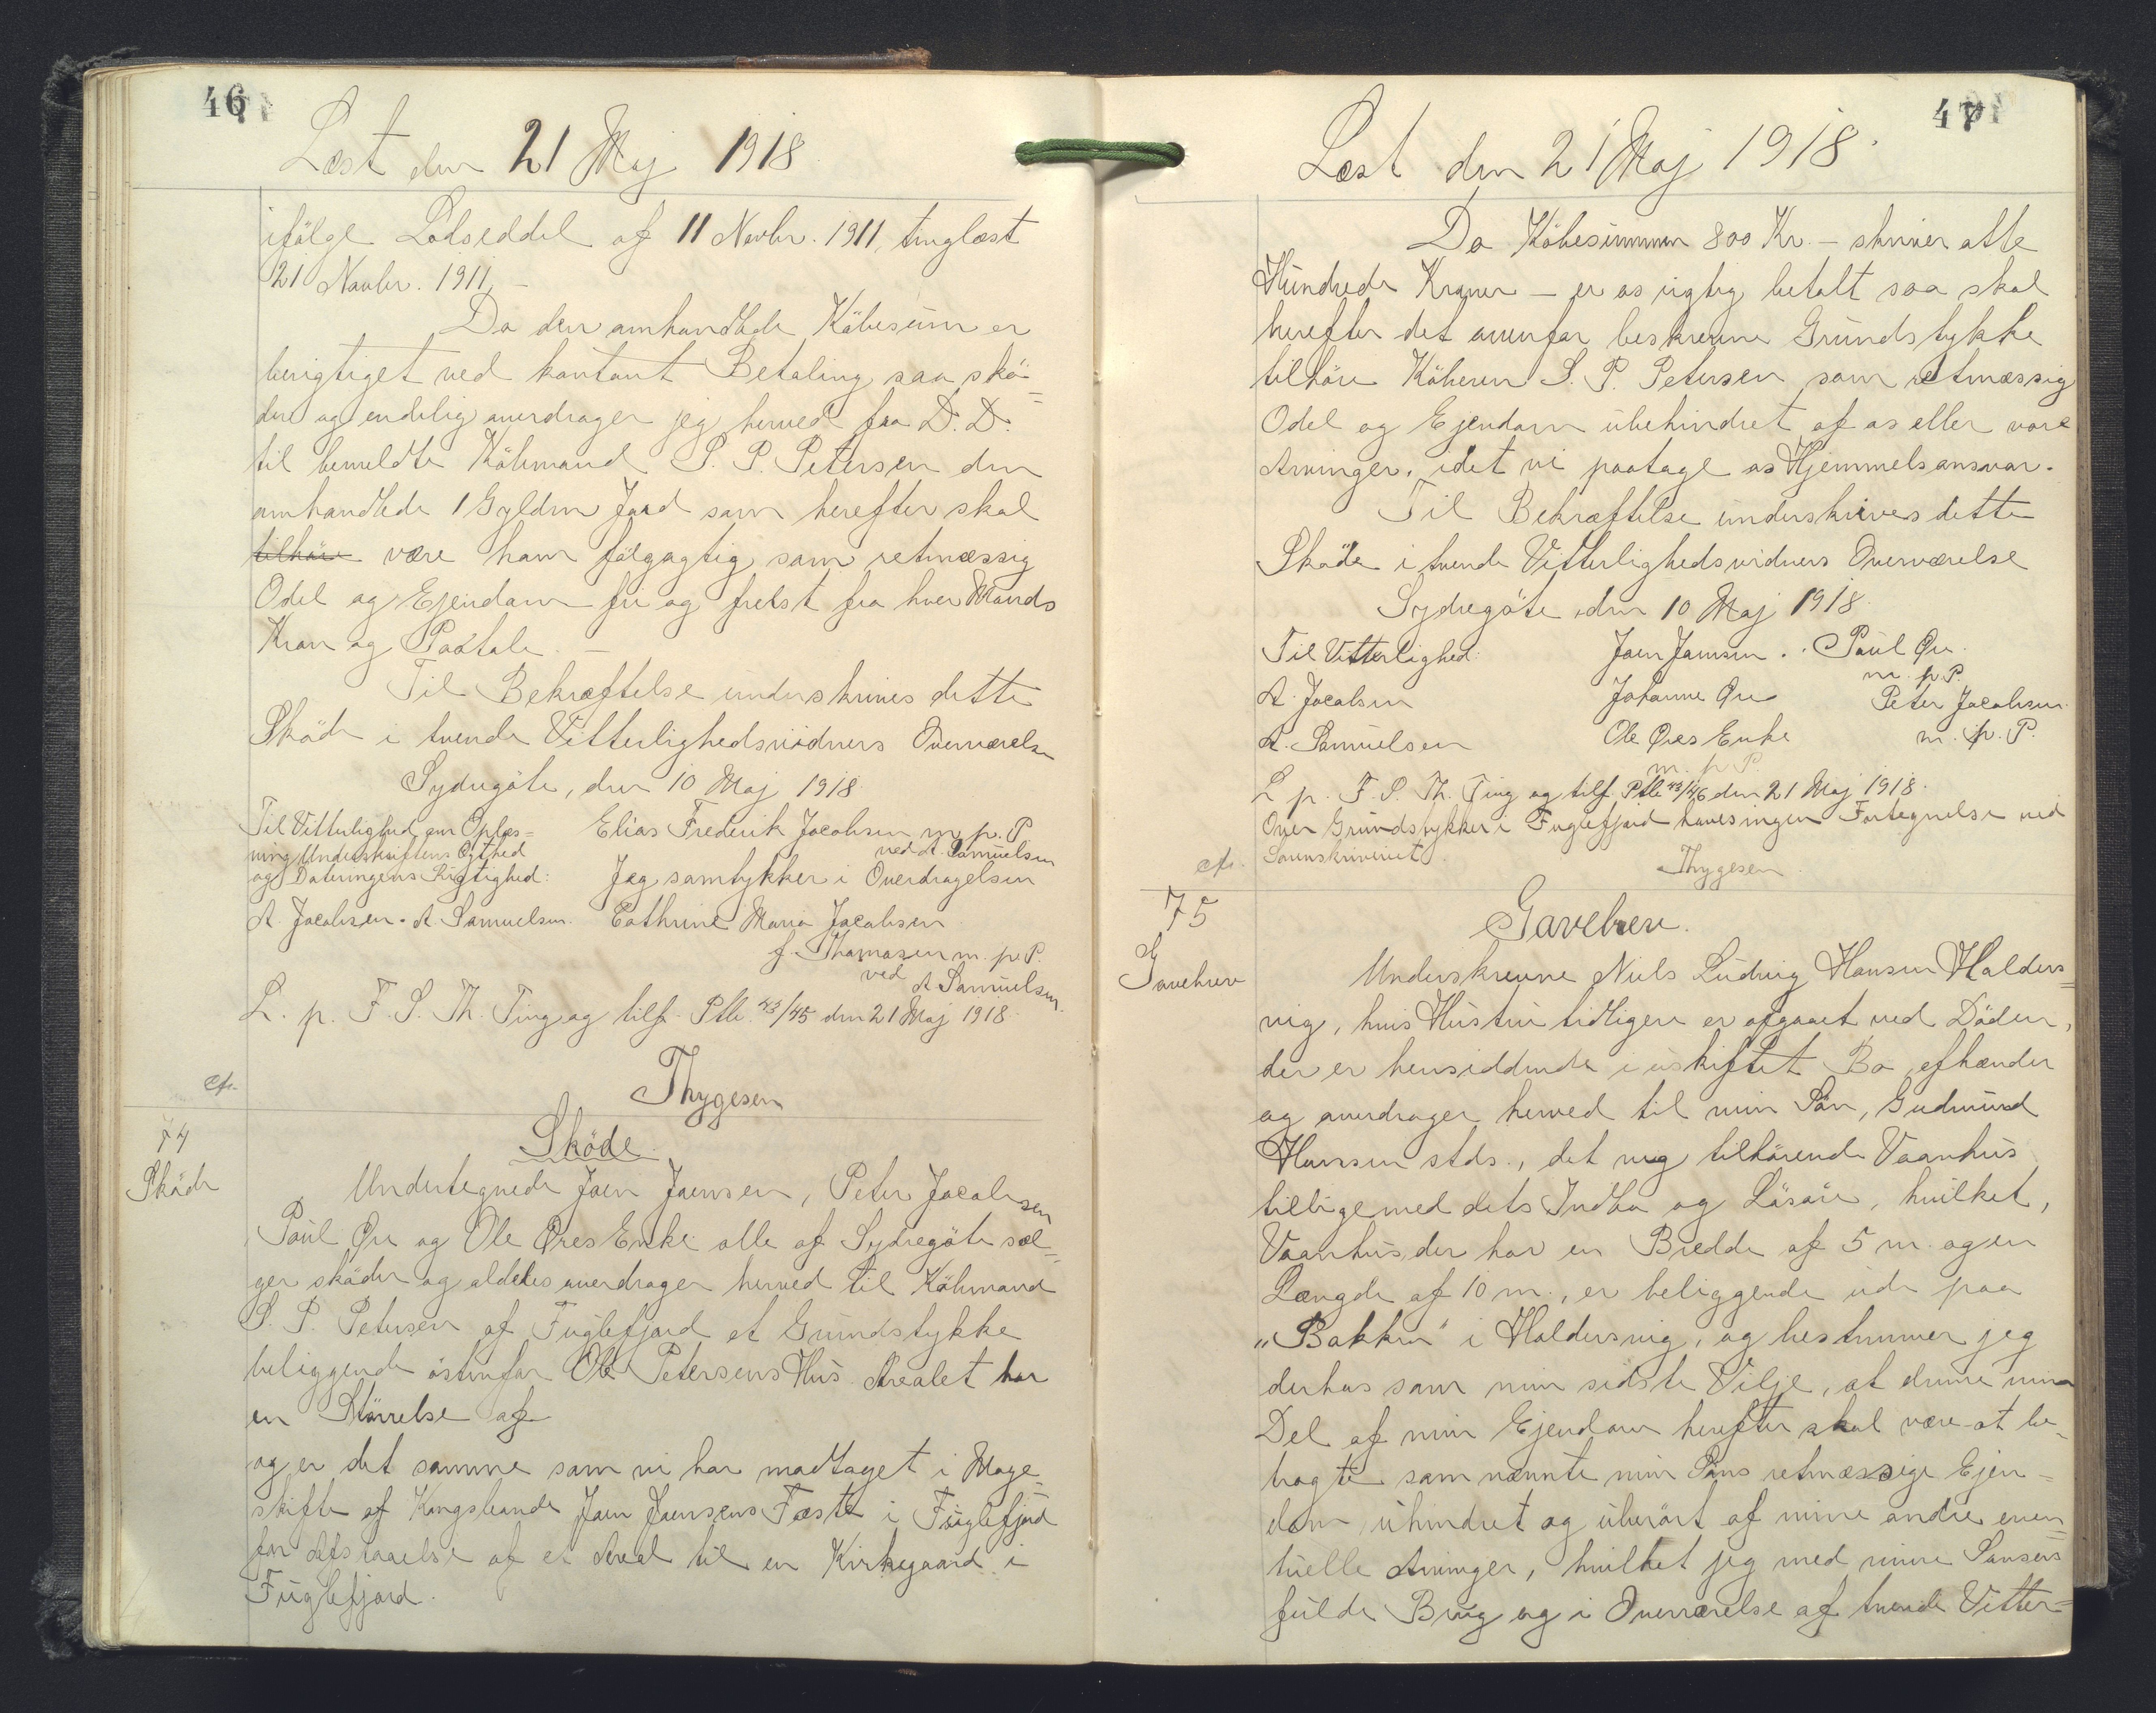 46
Læst den 21 Maj 1918
ifölge Lodseddel af 11 Novbr. 1911, tinglæst
21 Novbr. 1911. –
Da den omhandlede Köbesum er
berigtiget ved kontant Betaling saa skö=
der og endelig overdrager jeg herved fra D. D.
til bemeldte Köbmand S. P. Petersen den
omhandlede 1 Gylden Jord som herefter skal
tilhöre være ham fölgagtig som retmæssig
Odel og Ejendom fri og frelst fra hver Mands
Krav og Paatale. –
Til Bekræftelse underskrives dette
Sköde i tvende Vitterlighedsvidners Overværelse
Sydregöte, den 10 Maj 1918
Til Vitterlighed om Oplæs=
ning Underskriftens Ægthed
og Dateringens Rigtighed:
A. Jacobsen. A. Samuelsen.
Elias Frederik Jacobsen m. p. P
ved A. Samuelsen
Jeg samtykker i Overdragelsen
Cathrine Maria Jacobsen
f. Thomasen m. p. P.
ved A Samuelsen.
L. p. F. S. Th. Ting og tilf. Ptk. 43/45 den 21 Maj 1918.
Thygesen
74
Sköde
Sköde.
Undertegnede Joen Joensen, Peter Jacobsen
Poul Øre og Ole Øres Enke alle af Sydregöte sæl=
ger sköder og aldeles overdrager herved til Köbmand
S. P. Petersen af Fuglefjord et Grundstykke
beliggende östenfor Ole Petersens Hus. Arealet har
en Störrelse af
og er det samme som vi har modtaget i Mage
skifte af Kongsbonde Joen Joensens Fæste i Fuglefjord
for Afstaaelse af et Areal til en Kirkegaard i
Fuglefjord.
47
Læst den 21 Maj 1918.
Da Köbesummen 800 Kr. – skriver otte
Hundrede Kroner – er os rigtig betalt saa skal
herefter det ovenfor beskrevne Grundstykke
tilhöre Köberen S. P. Petersen som retmæssig
Odel og Ejendom ubehindret af os eller vore
Arvinger, idet vi paatage os Hjemmelsansvar.
Til Bekræftelse underskrives dette
Sköde i tvende Vitterlighedsvidners Overværelse
Sydregöte, den 10 Maj 1918.
Til Vitterlighed:
A. Jacobsen
A. Samuelsen
Joen Joensen. Poul Øre.
m. p. P.
Johanne Øre
Peter Jacobsen
Ole Øres Enke
m. p. P.
m. p. P.
L. p. F. S. Th. Ting og tilf. Ptk. 43/46 den 21 Maj 1918.
Over Grundstykker i Fuglefjord haves ingen Fortegnelse ved
Sorenskriveriet.
Thygesen
75
Gavebrev
Gavebrev.
Underskrevne Niels Ludvig Hansen Halders=
vig, hvis Hustru tidligere er afgaaet ved Döden,
der er hensiddende i uskiftet Bo, afhænder
og overdrager herved til min Sön, Gudmund
Hansen stds., det mig tilhörende Vaanhus
tilligemed dets Indbo og Lösöre, hvilket,
Vaanhus, der har en Bredde af 5 m. og en
Længde af 10 m., er beliggende ude paa
„Bakken" i Haldersvig, og bestemmer jeg
derhos som min sidste Vilje, at denne min
Del af min Ejendom herefter skal være at be=
tragte som nævnte min Söns retmæssige Ejen=
dom, uhindret og uberört af mine andre even=
tuelle Arvinger, hvilket jeg med mine Sansers
fulde Brug og i Overværelse af tvende Vitter=